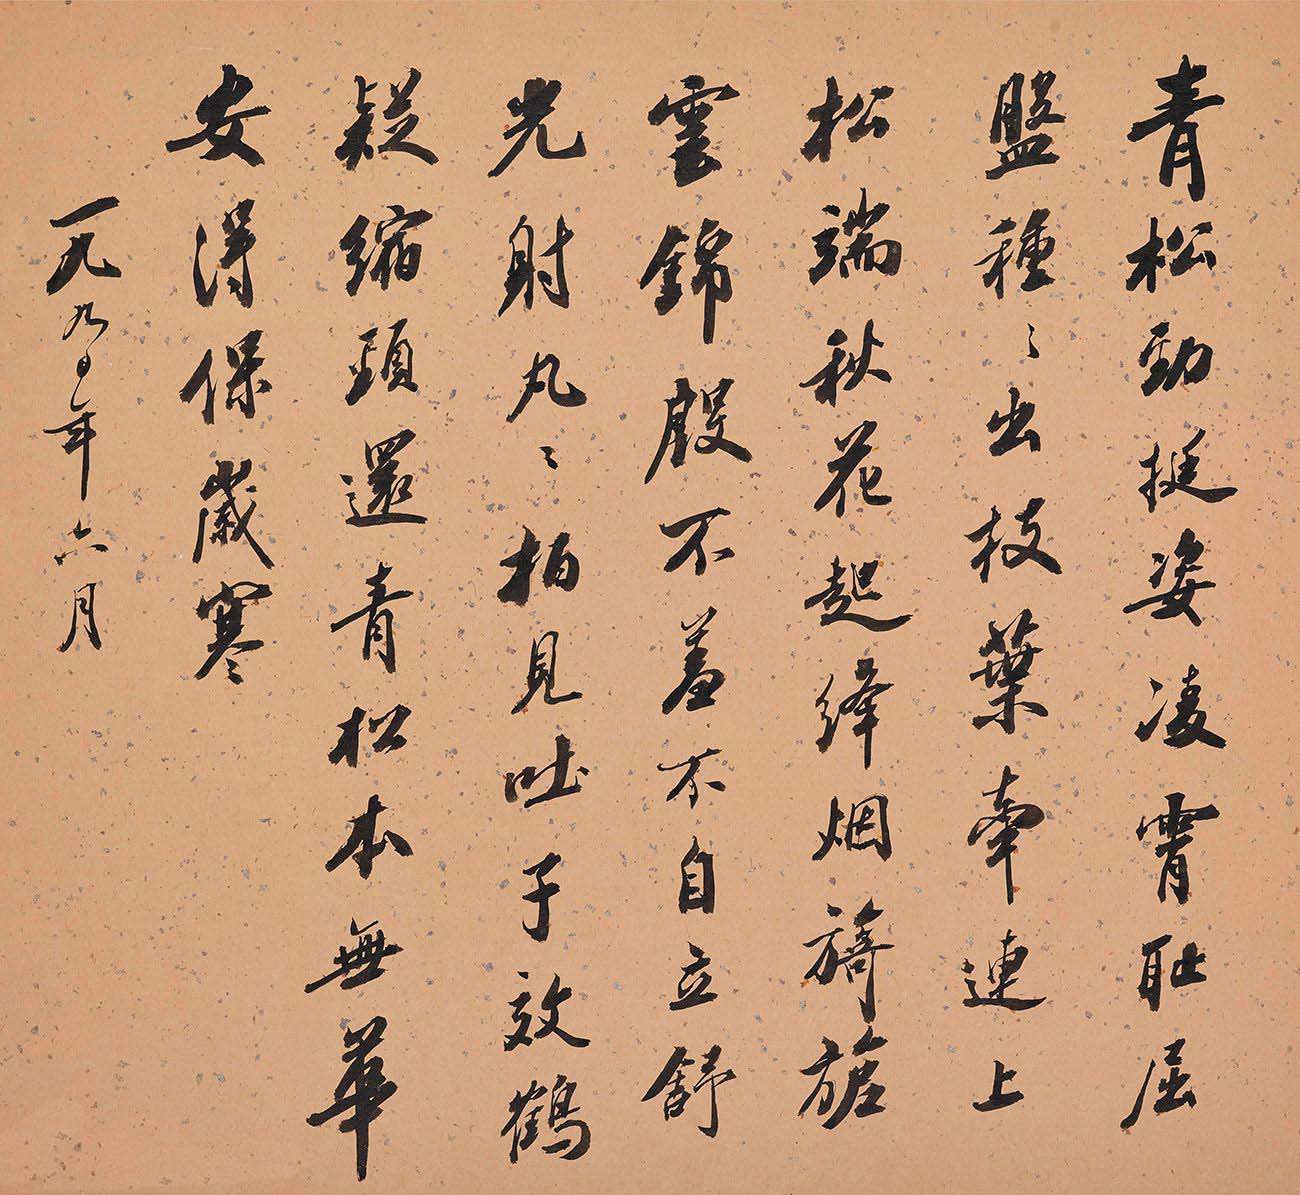 青松勁挺姿凌霄耻屈
盤種〻出枝葉牽連上
松端秋花起絳烟旖旎
雲錦殷不羞不自立舒
光射丸〻柏見吐子效鶴
疑縮頸還青松本無華
安得保歲寒
一九九〇年六月